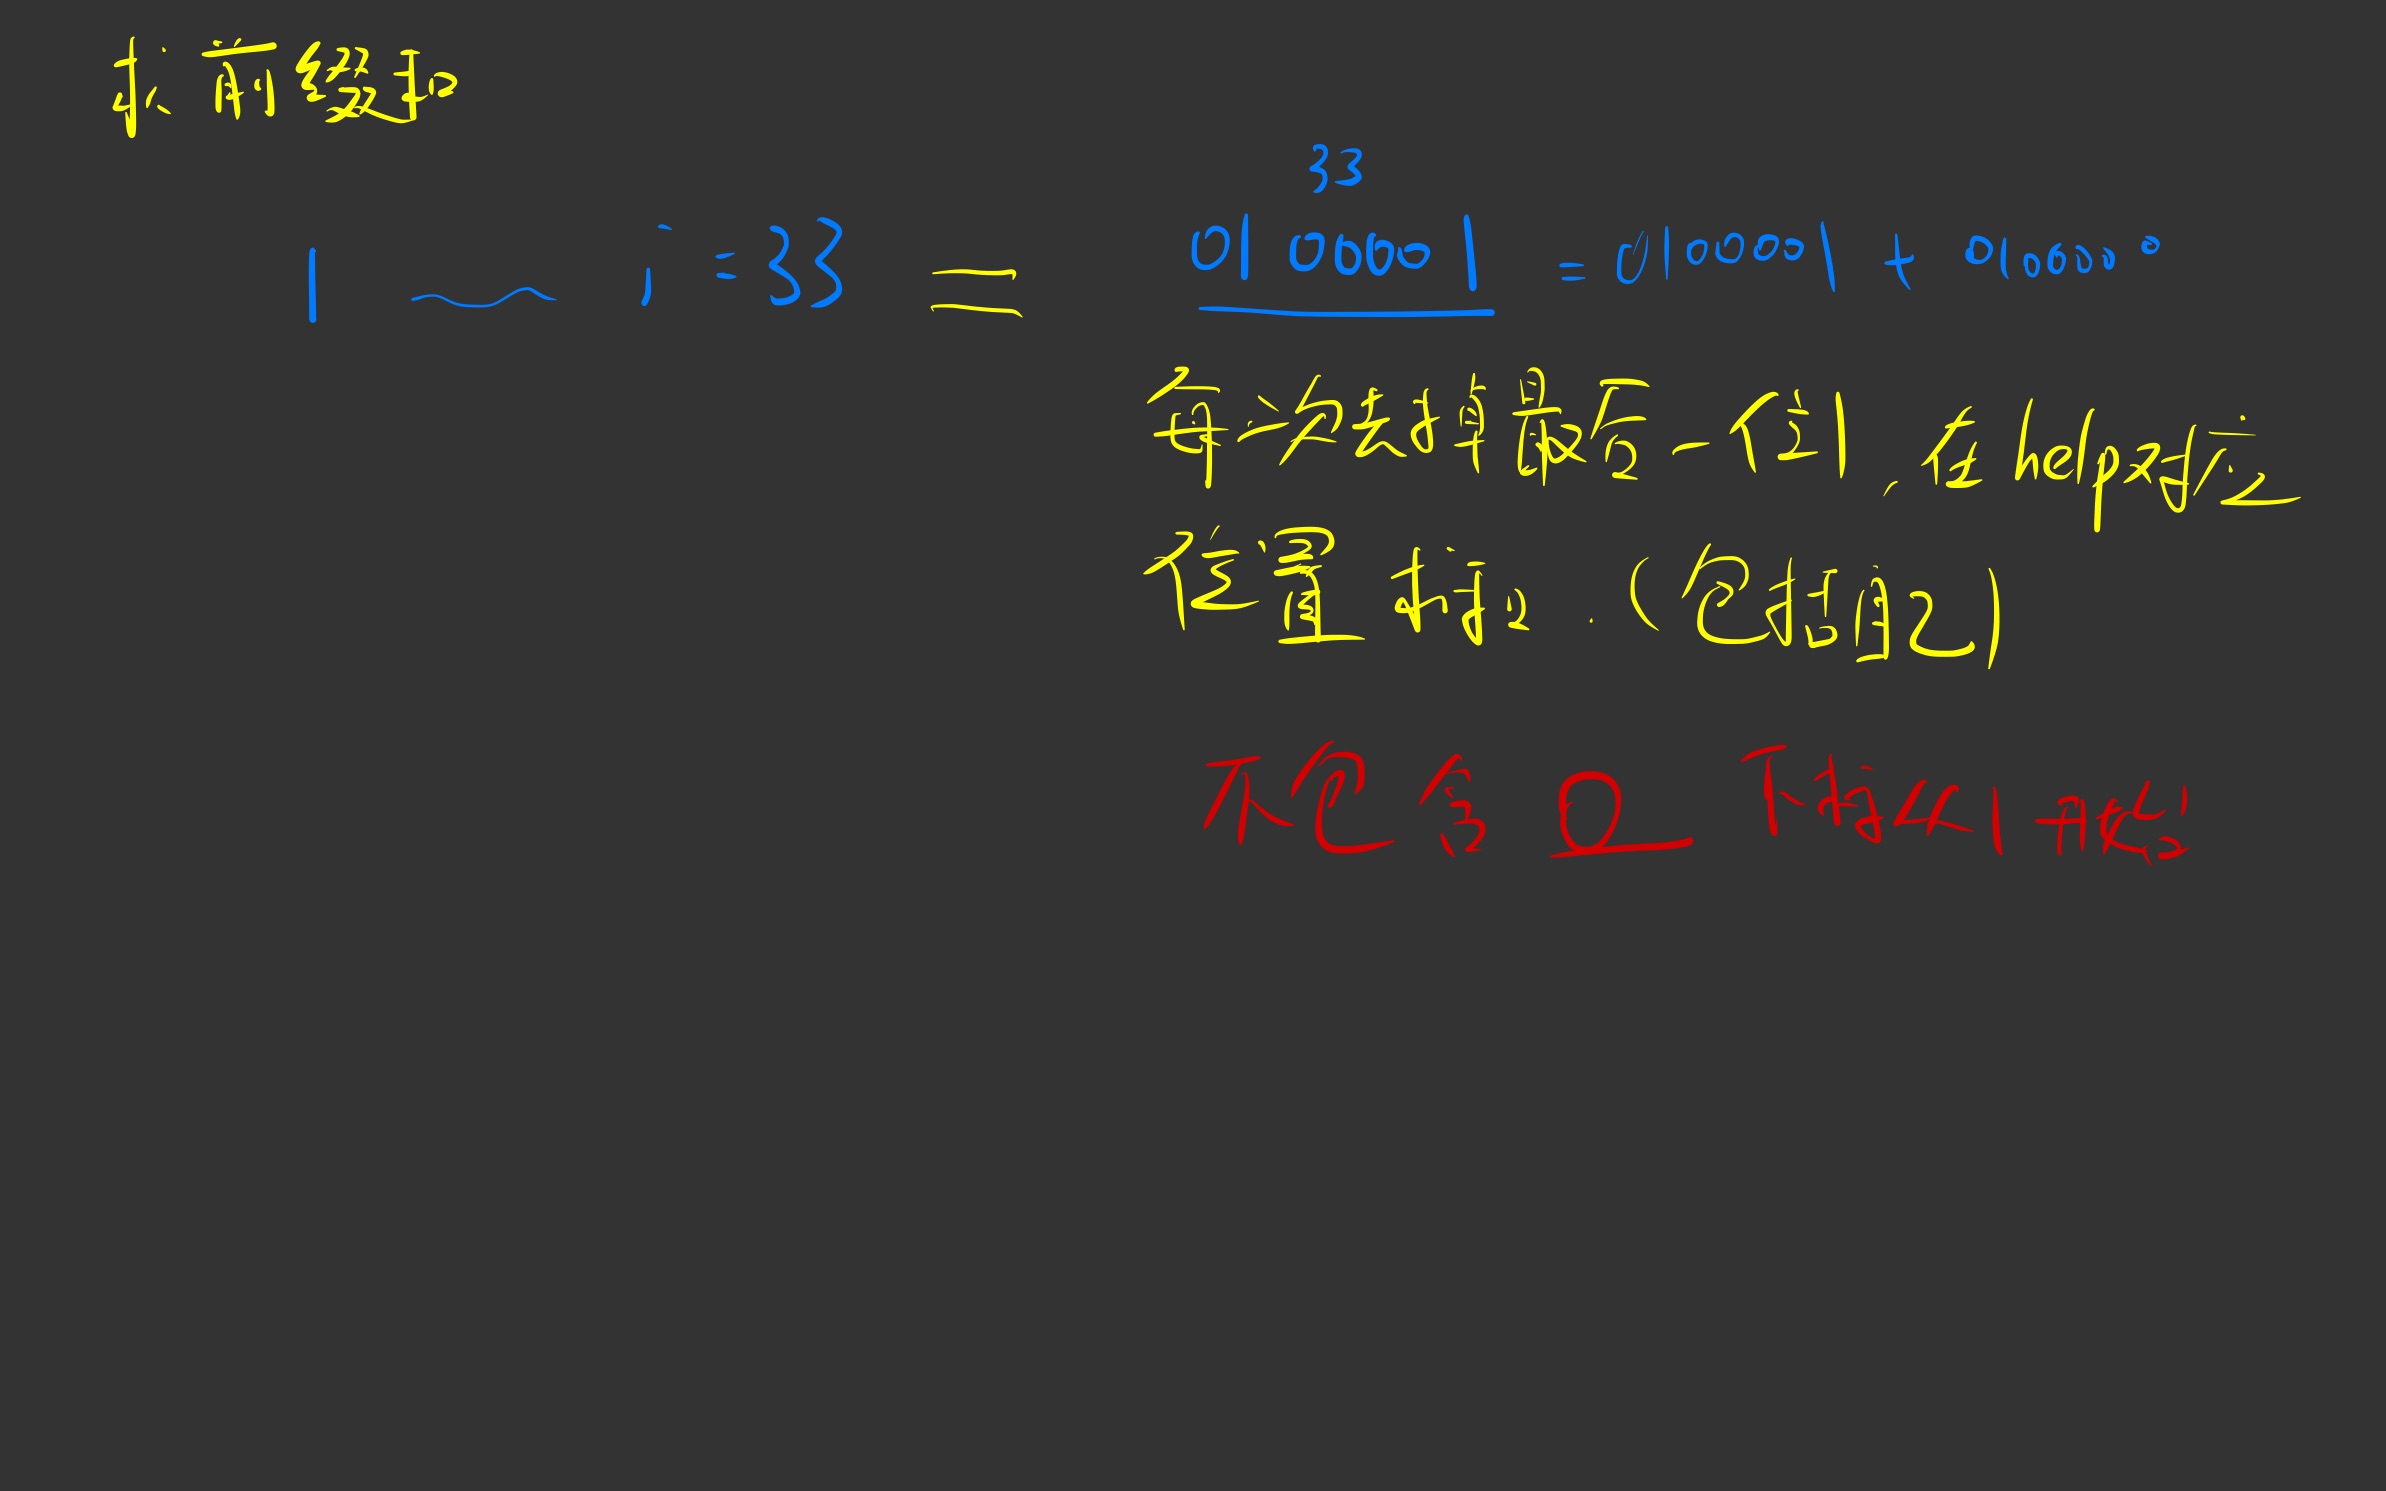 求前缀和
33
1 ~ i = 33 = 0100001 = 0100001 + 0100000
每次去掉最后一位1,在help对应
位置相加.(包括自己)
不包含0 下标从1开始